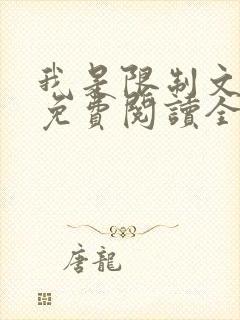 我是限制文
免費閱讀全
唐龍